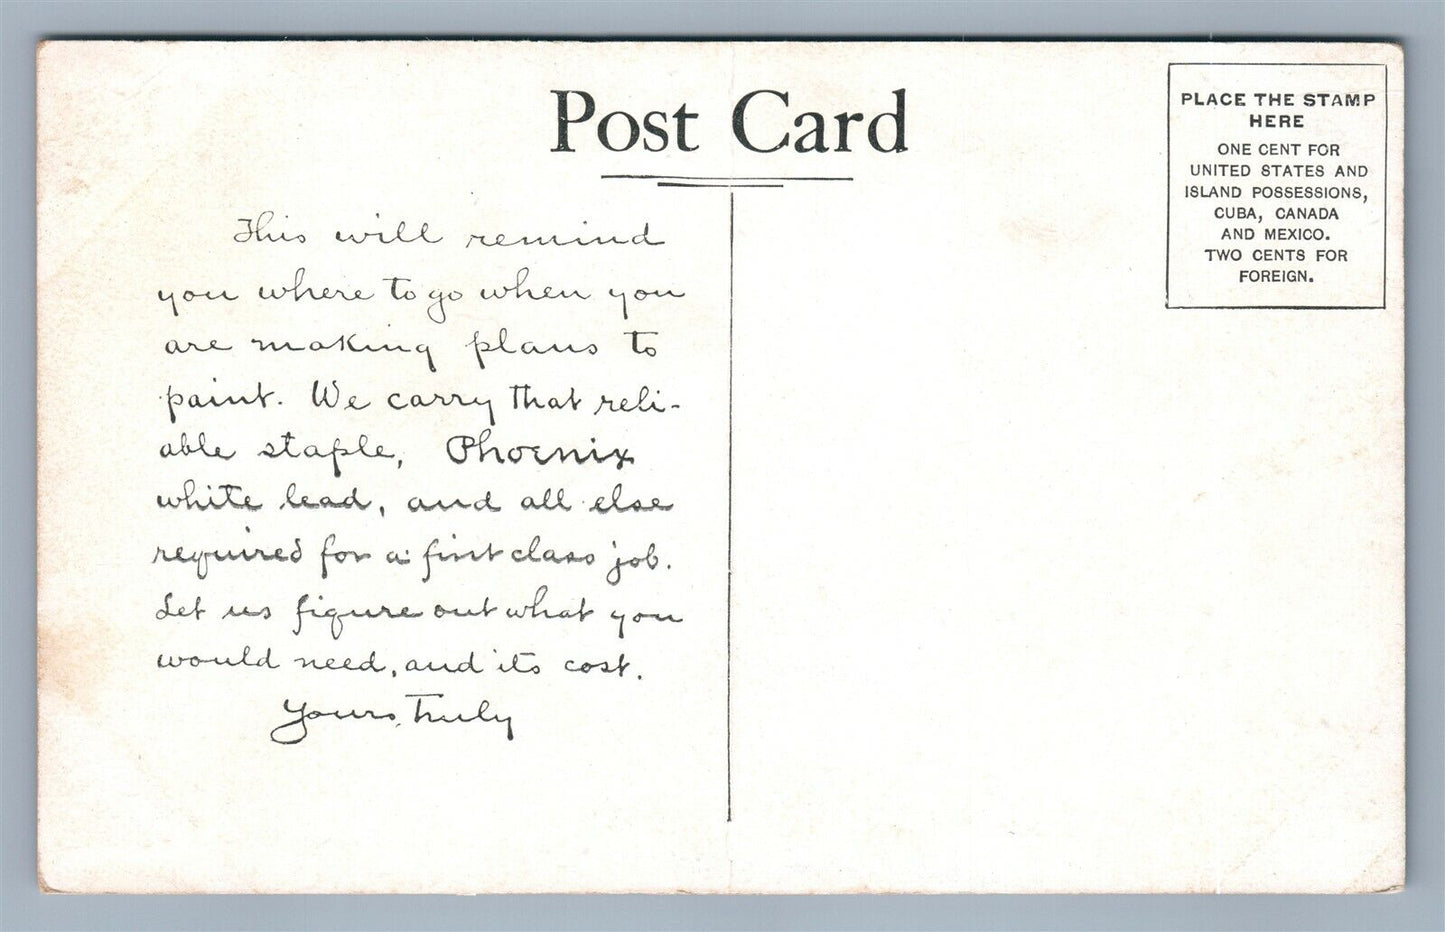 Post Card
PLACE THE STAMP
HERE
ONE CENT FOR
UNITED STATES AND
ISLAND POSSESSIONS,
CUBA, CANADA
AND MEXICO.
TWO CENTS FOR
FOREIGN.
This will remind
you where to go when you
are making plans to
paint. We carry that reli-
able staple, Phoenix
white lead, and all else
required for a first class job.
Let us figure out what you
would need, and its cost.
Yours Truly